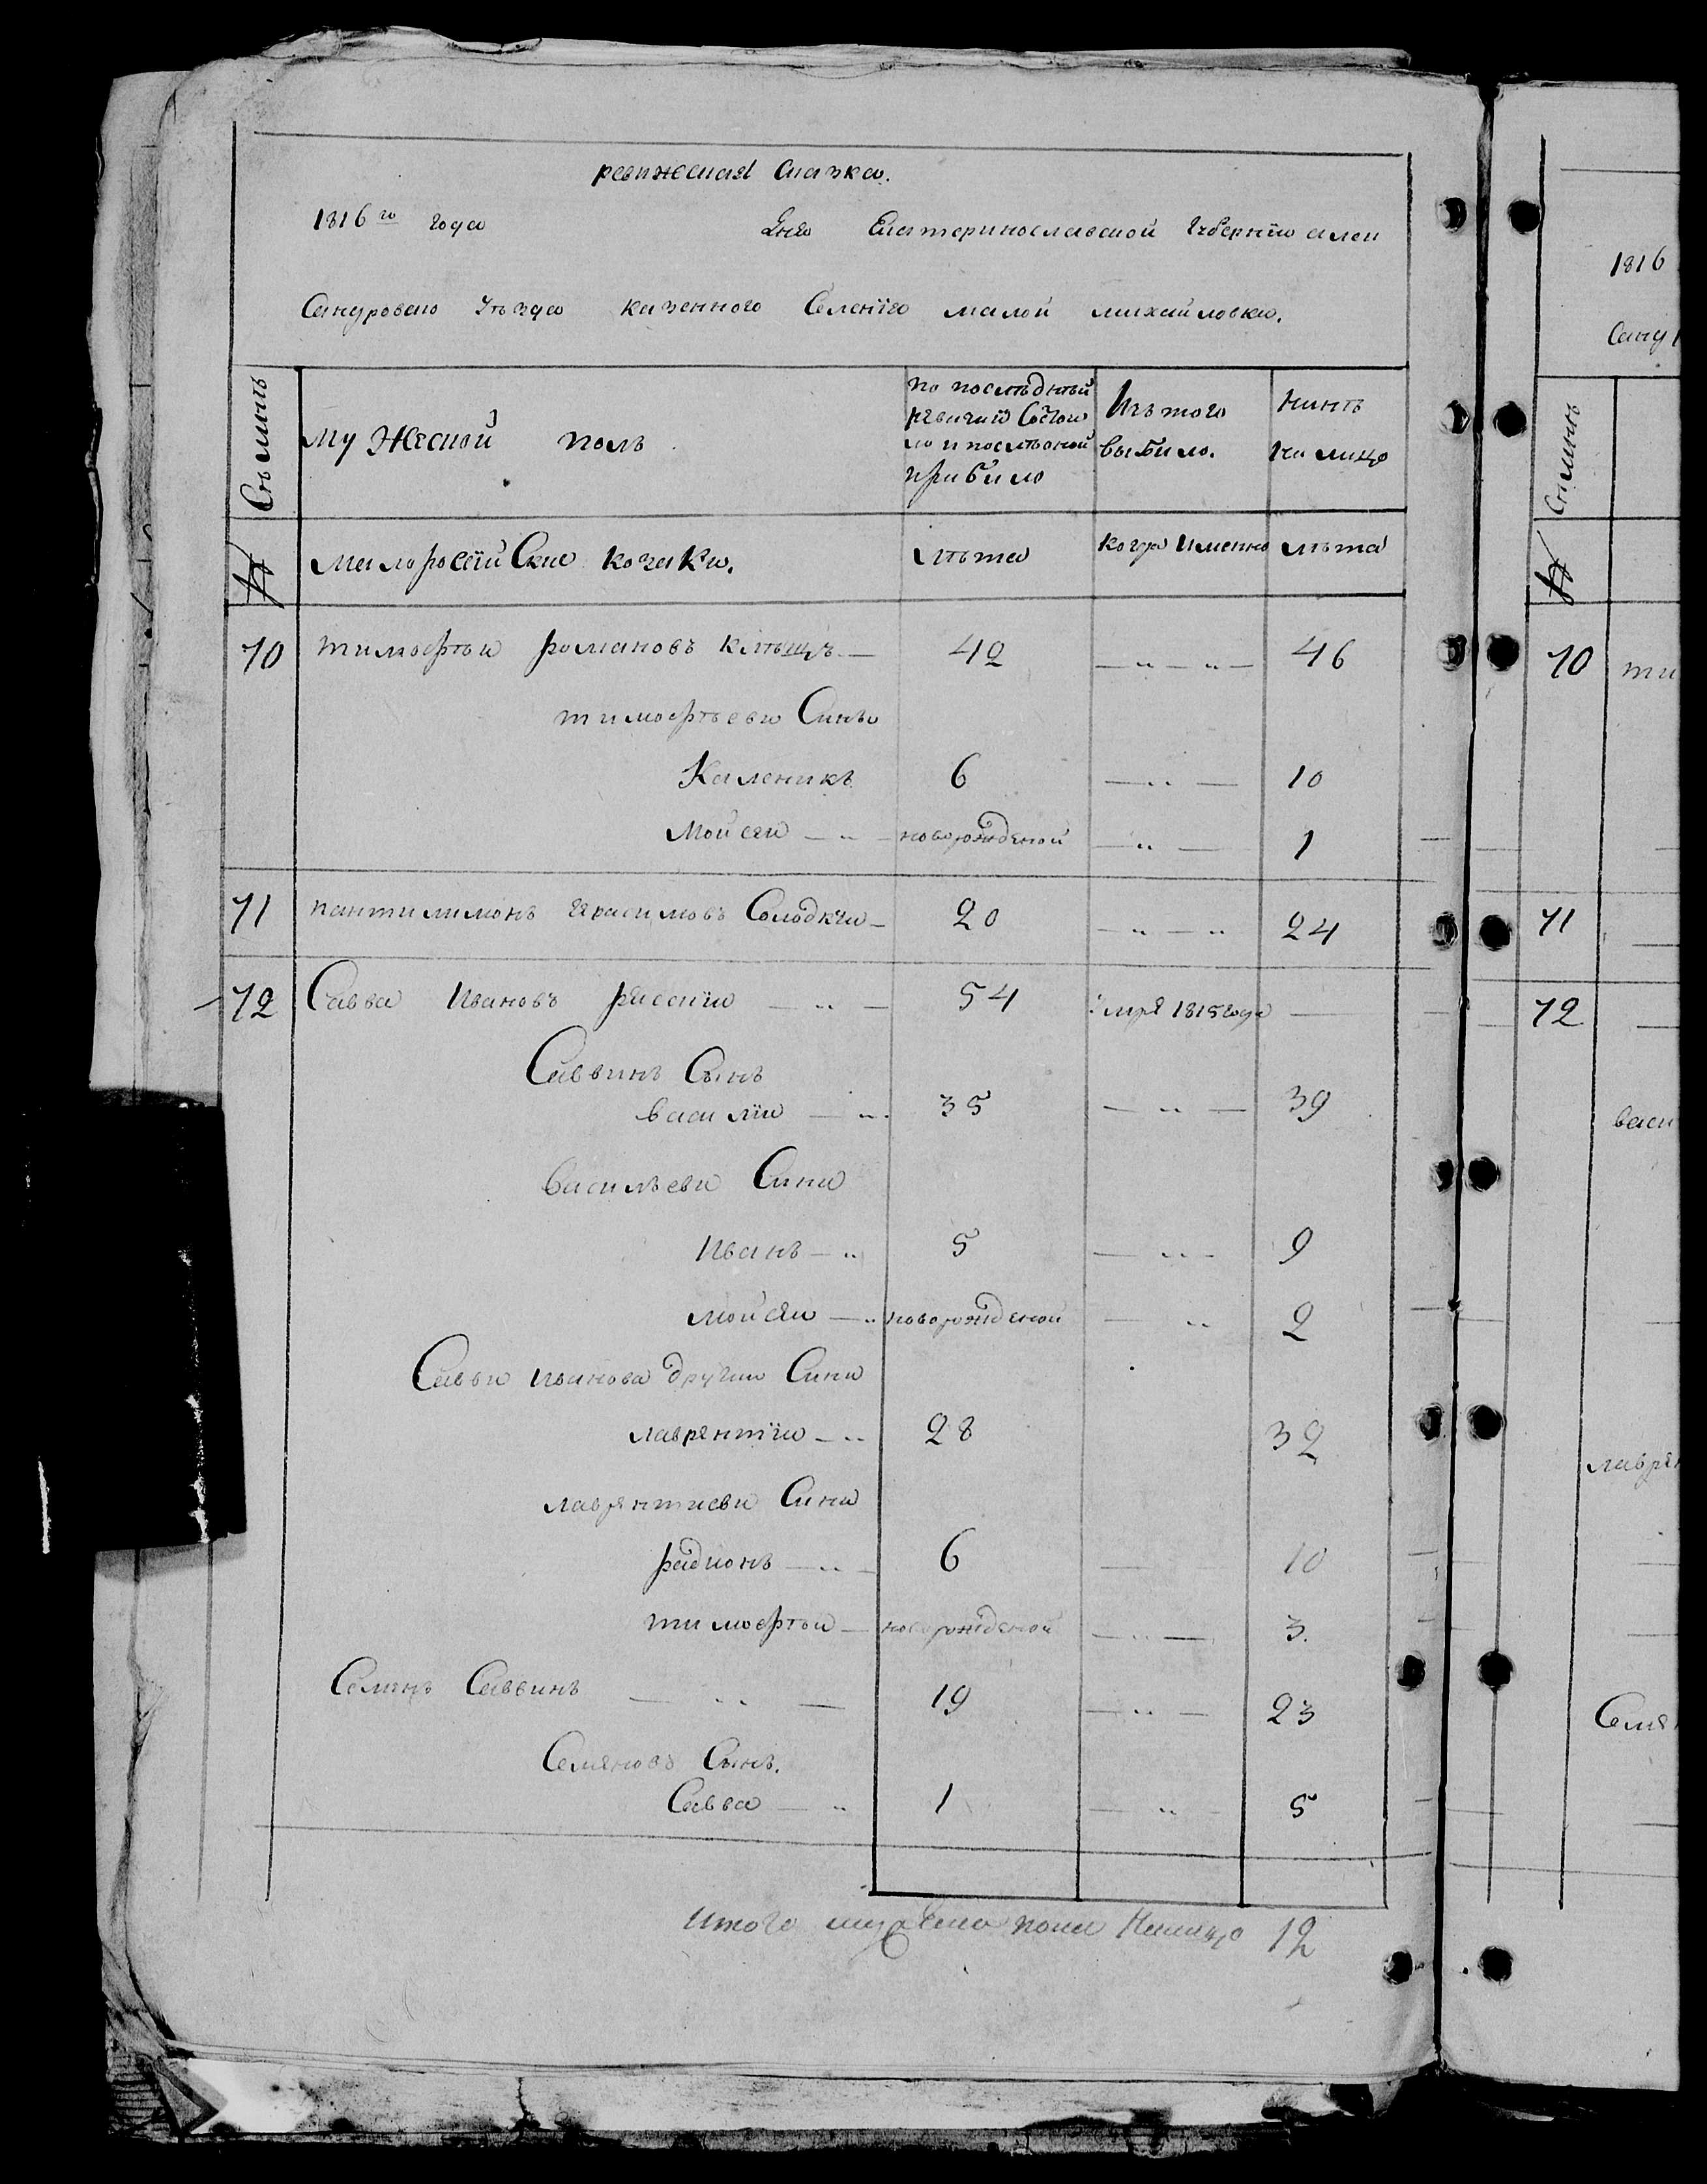 ревижская сказка.
1816 го года Дня Екатеринославской Губернии алек
сандровско Уѣзда казенного Селенїя малой михайловки.
Съмыить
мужеской полъ
по послѣдней ревизий Состоя ло и после оной прибило
Изъ того выбило.
нинѣ на лицо
№
малоросейские козаки.
лѣта
когда именно
лѣта
70 тимофѣи романовъ 42 46
тимофѣеви Сини
Каленикъ 6 10
Мойсеи новорожденой 1
71 пантилимонъ герасимовъ Солодкии 20 24
72 Савва Ивановъ 54 умре 1815 года
Саввинъ Сынъ
василїи 35 39
васильеви Сини
Иванъ 5 9
мойсеи новорожденой 2
Савви иванова другии Сини
лаврентїи 28 32
лаврентиеви Сини
радионъ 6 10
тимофѣи новорожденой 3.
Семенъ Саввинъ 19 23
Семеновъ Сынъ.
Савва 1 5
Итого мужеска пола Налицо 12
1816
Санд
70 ти
71
72
васи
лаврен
Семе